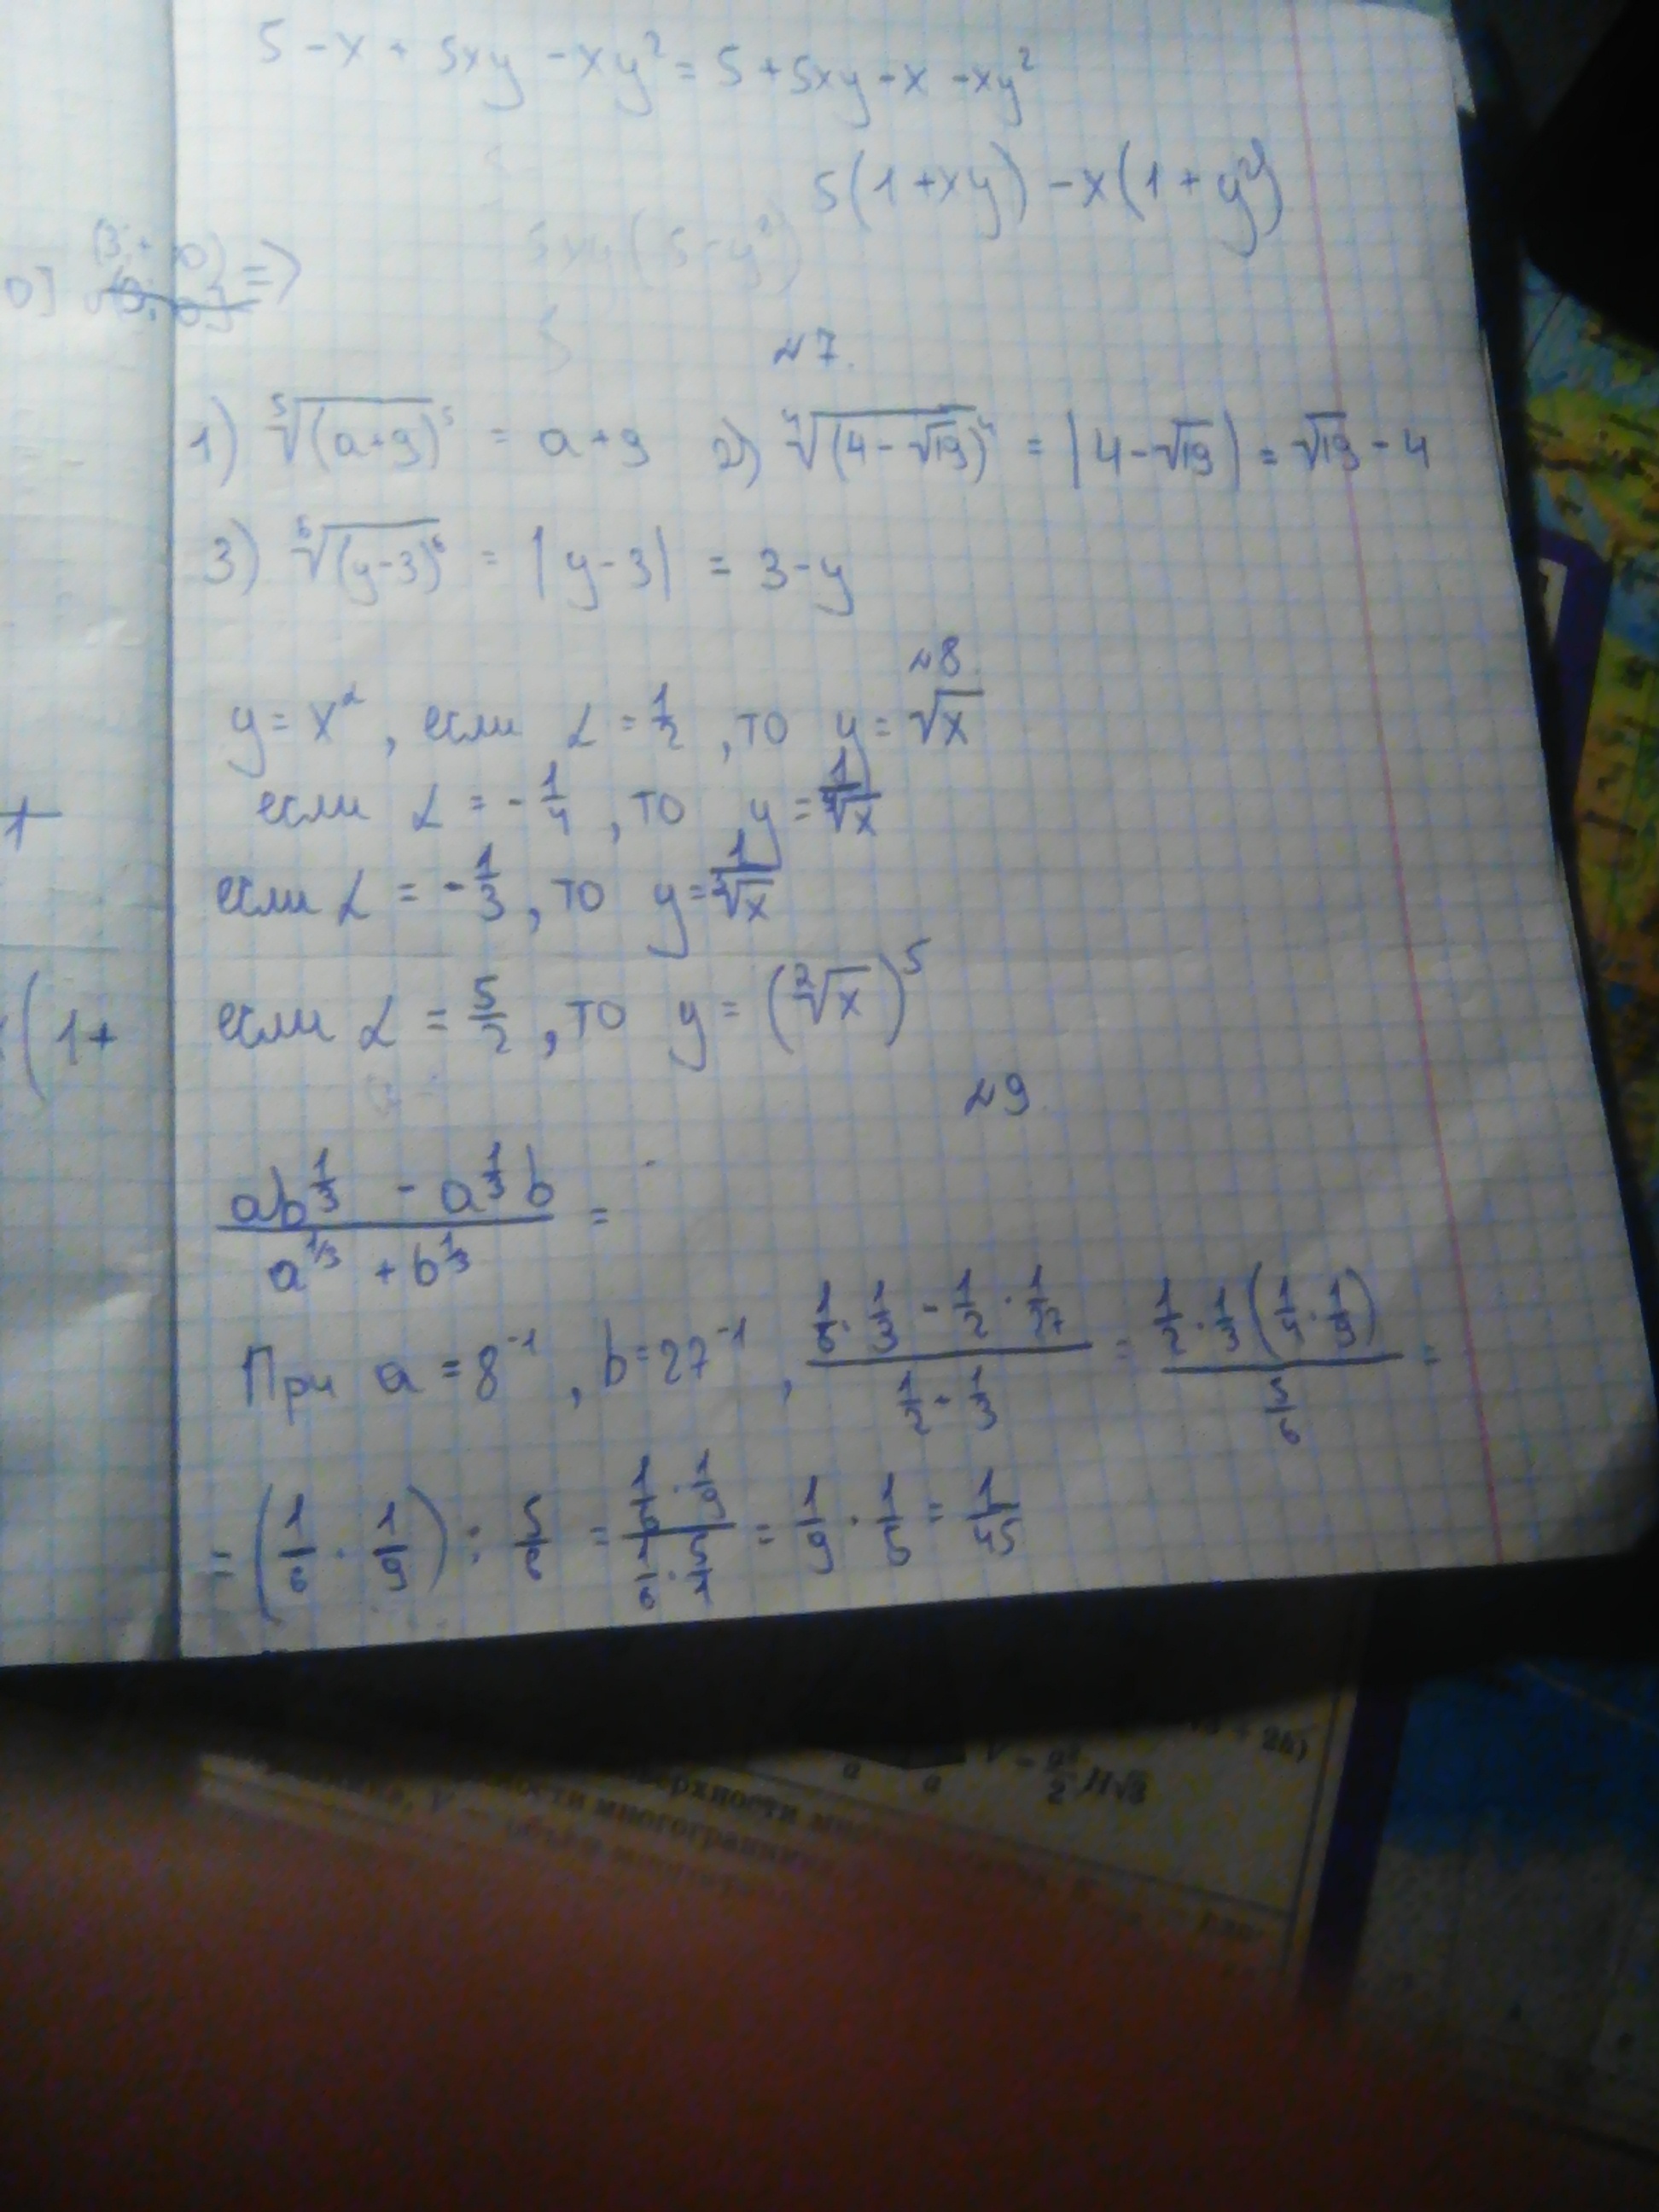 5 - x + 5xy - xy² = 5 + 5xy - x - xy²
5(1 + xy) - x(1 + y²)
5xy(5 - y²)
0] =>
5
№7.
1) ⁵√(a+9)⁵ = a+9 2) ⁴√(4-√19)⁴ = |4-√19| = √19 - 4
3) ⁶√(y-3)⁶ = |y-3| = 3-y
№8.
y = x^α, если α = 1/2, то y = √x
если α = -1/4, то y = 1/⁴√x
1
если α = -1/3, то y = 1/³√x
если α = 5/2, то y = (²√x)⁵
(1+
№9
(ab^(1/3) - a^(1/3)b)/(a^(1/3) + b^(1/3)) =
При a = 8⁻¹, b = 27⁻¹, (1/8 · 1/3 - 1/2 · 1/27)/(1/2 + 1/3) = (1/2 · 1/3(1/4 · 1/9))/(5/6) =
= (1/6 · 1/9) : 5/6 = (1/6 · 1/9)/(1/6 · 5/1) = 1/9 · 1/5 = 1/45
+ 2b)
a a V = a²/2 H√3